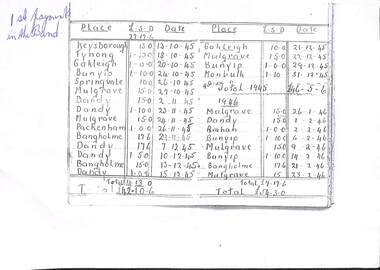 1st payment
in the Band.
Place L-S-D Date Place L-S-D Date
Keysborough 13-10-45 Oakleigh 10-0 21-12-45
Tynong 18-10-45 Mulgrave 15-0 22-12-45
Oakleigh 1-0-0 20-10-45 Bunyip 1-0-0 29-12-45
Bunyip 1-10-0 24-10-45 Monbulk 1-10 31-12-45
Springvale 10-0 26-10-45 Total 1945 £46-5-6
Mulgrave 15-0 27-10-45
Dandy 15-0 2-11-45 1946
Dandy 1-10-0 23-11-45 Mulgrave 15-0 26-1-46
Mulgrave 15-0 24-11-45 Dandy 15-0 1-2-46
Packenham 1-0-0 26-11-45 2-2-46
Bangholme 17-6 Bunyip 1-10-0 6-2-46
Dandy 17-6 7-12-45 Mulgrave 15-0 9-2-46
Dandy 1-5-0 10-12-45 Bunyip 1-10-0 14-2-46
Bangholme 15-0 13-12-45 Bangholme 17-6 21-2-46
Dandy 15-12-45 Mulgrave 15 23-2-46
Total Total £7-17-6
Total £42-10-6 Total £54-3-0